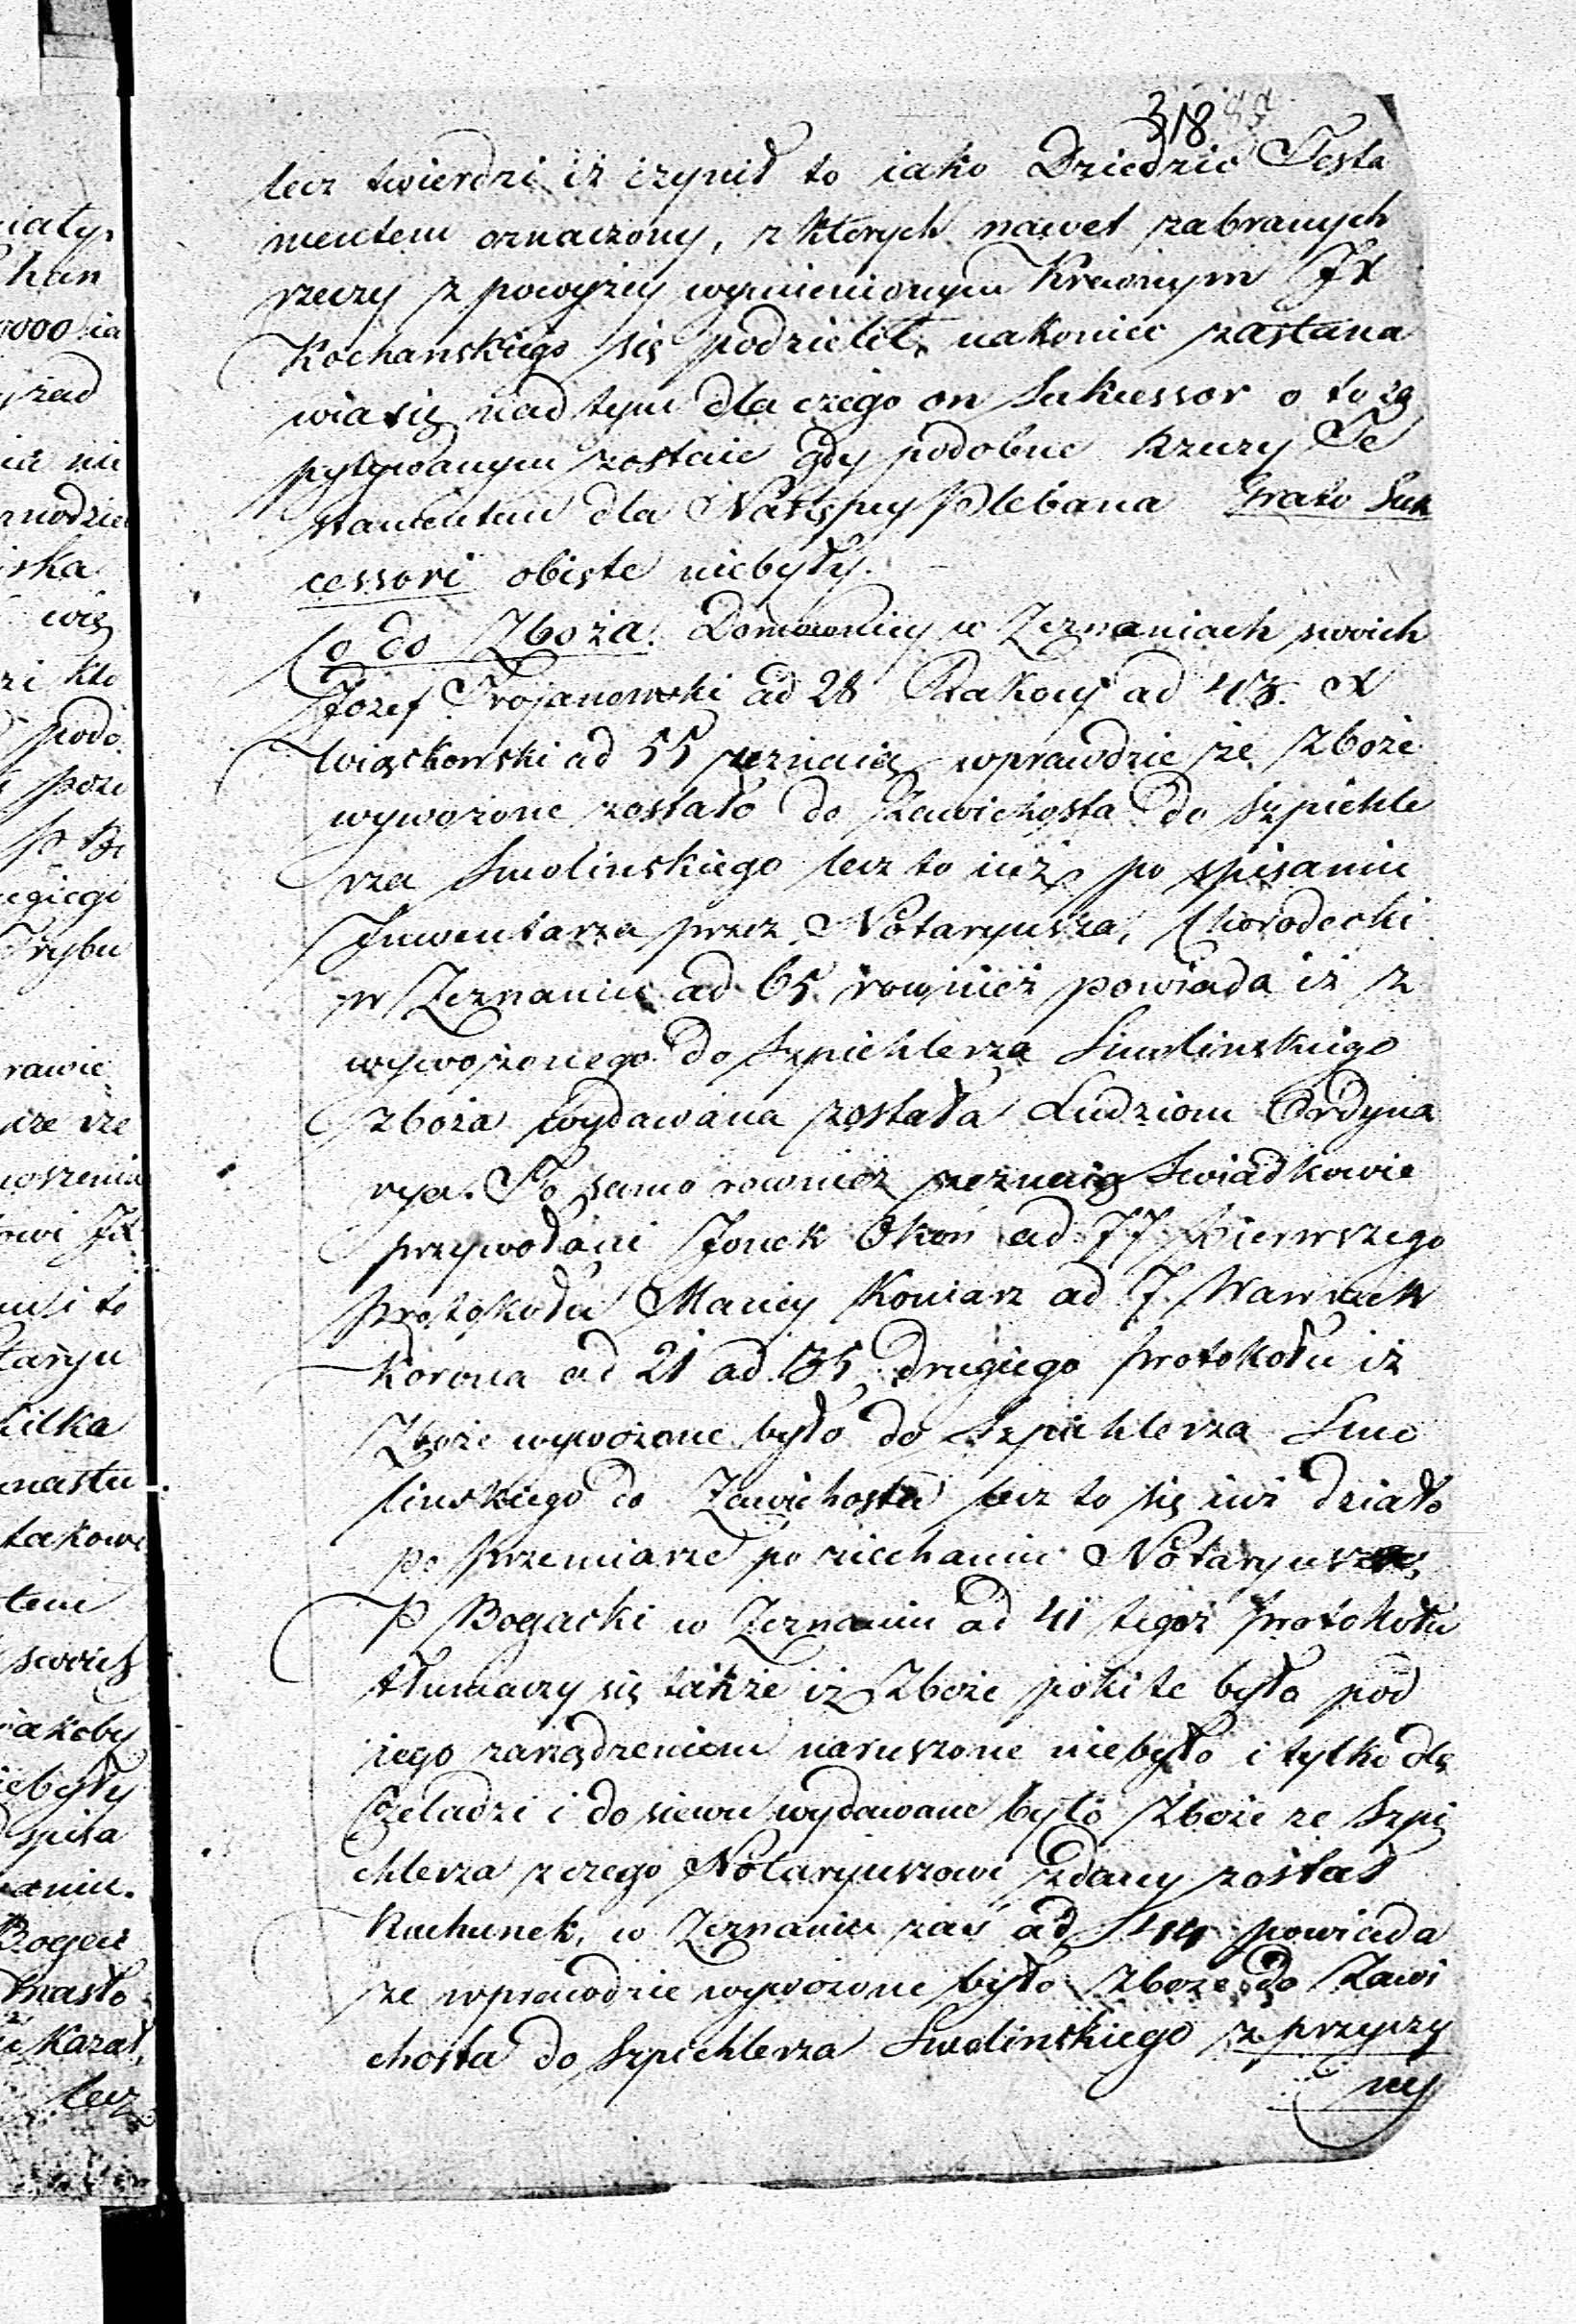 318
lecz twierdzi iż czynił to iako Dziedzic Testa
mentem oznaczony, z których nawet zabranych
rzeczy z powyżey wymienionym Krewnym JX
Kochanskiego się podzielił, nakoniec zastana
wia się nad tym dla czego on Sukcessor o to za
pytywanym zostaie gdy podobne Rzeczy Te
stamentem dla Następcy Plebana Grato Suk
cessori obięte niebyły.
Co do Zboża. Domownicy w Zeznaniach swoich
Jozef Trojanowski ad 28 Rakowy ad 43. X
Wiąckowski ad 55 zeznaią wprawdzie że Zboże
wywożone zostało do Zawichosta do Szpichle
rza Smolinskiego lecz to iuż po spisaniu
Inwentarza przez Notaryusza, Chorodecki
w Zeznaniu ad 65 rownież powiada iż z
wywożonego do Szpichlerza Smolinskiego
zboża wydawana została Ludziom Ordyna
rya. To samo rownież zeznaią Swiadkowie
przywołani Jonek Okoń ad 77 Pierwszego
Protokołu Maciey Koniarz ad 7. Wawrzek
Korona ad 21 ad 135 drugiego Protokołu iż
Zboże wywożone było do Szpichlerza Smo
linskiego do Zawichosta lecz to się iuż działo
po Przemiarze po ziechaniu Notaryusza,
P Bogacki w Zeznaniu ad 41 tegoż Protokołu
tłumaczy się także iż Zboże poki te było pod
iego zarządzeniem naruszone niebyło i tylko dla
Czeladzi i do siewu wydawane było Zboże ze Szpi
chlerza z czego Notaryuszowi zdany został
Rachunek, w Zeznaniu zaś ad 144 powiada
że wprawdzie wywożone było Zboże do Zawi
chosta do Szpichlerza Smolinskiego z przyczy
ny